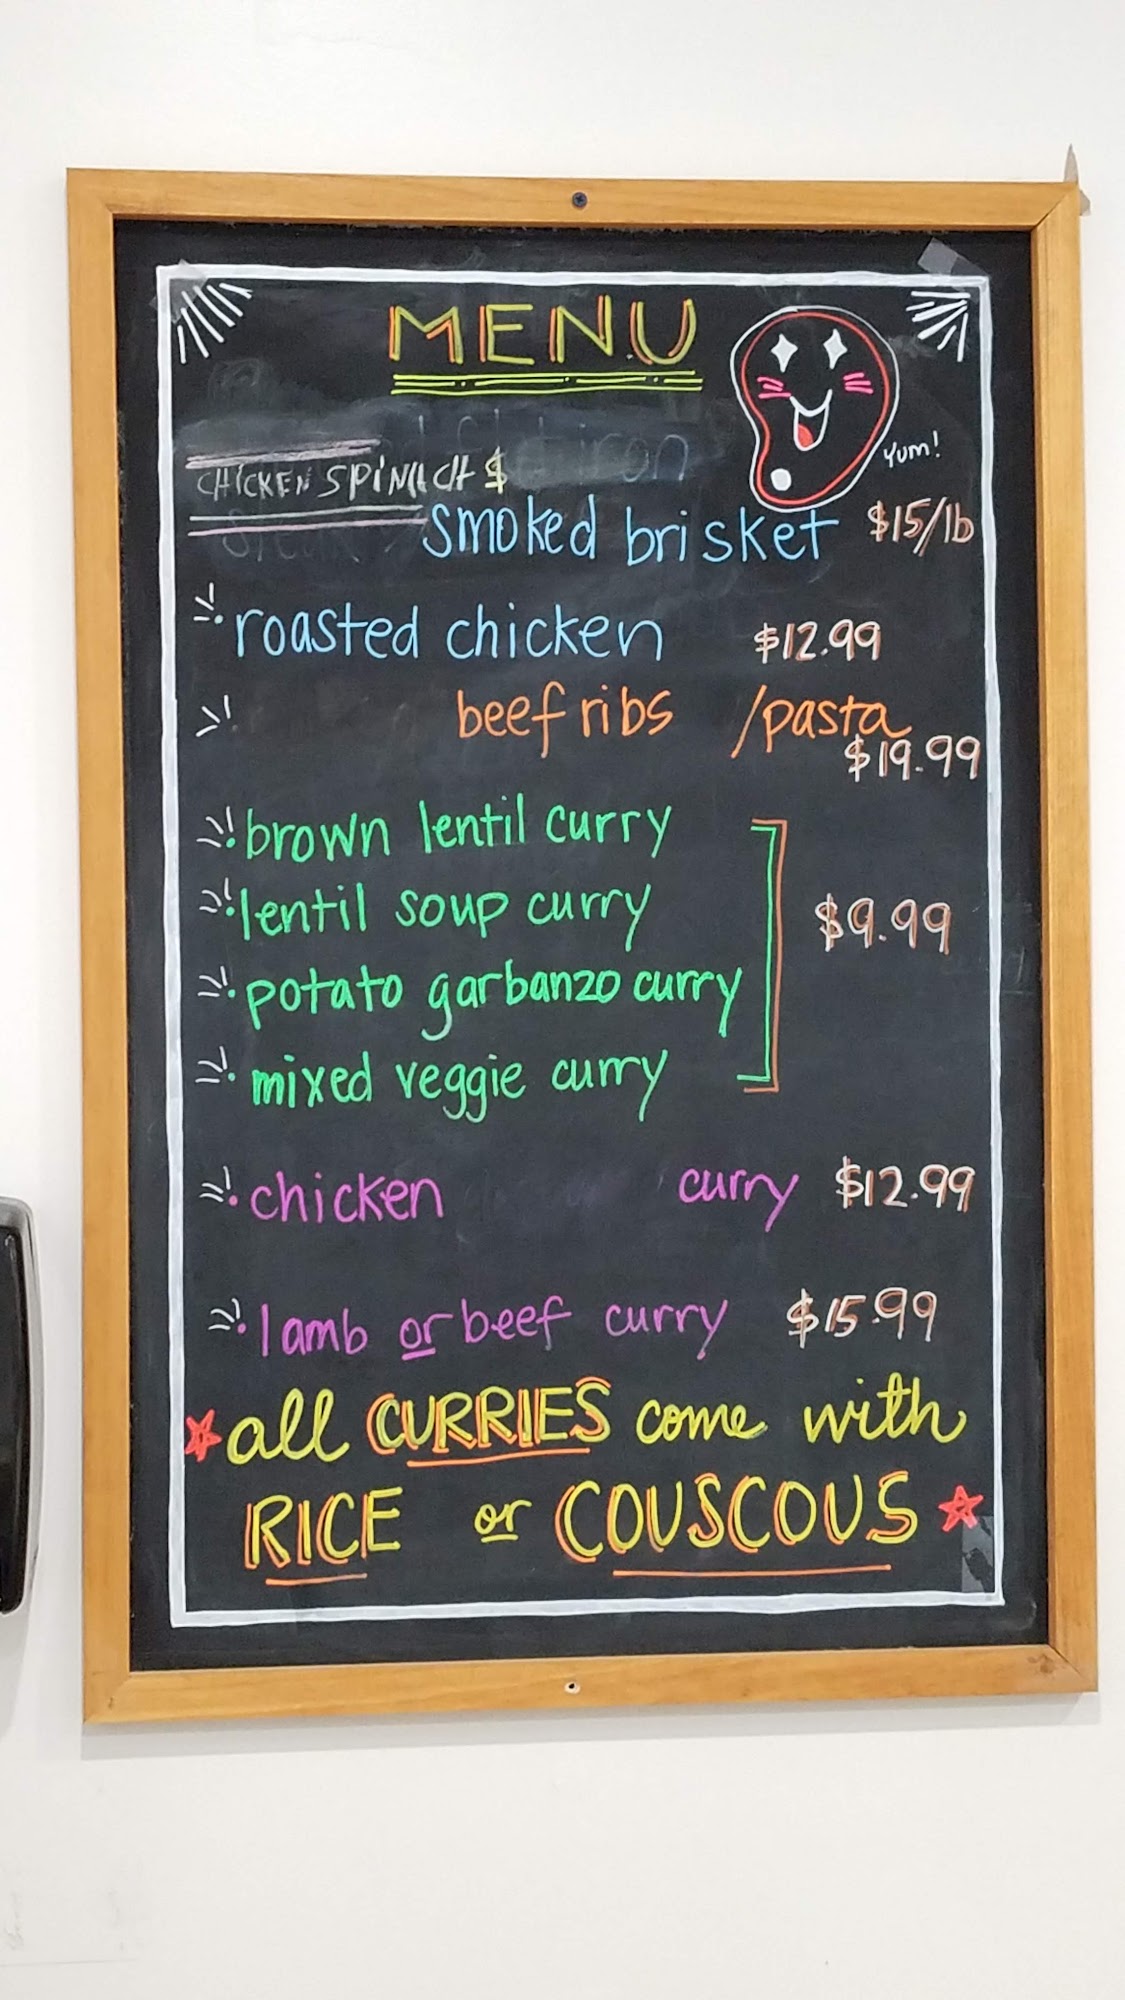 MENU
Yum!
CHICKEN SPINACH $
smoked brisket $15/lb
roasted chicken $12.99
beef ribs /pasta
$19.99
brown lentil curry
lentil soup curry
$9.99
potato garbanzo curry
mixed veggie curry
chicken curry $12.99
lamb or beef curry $15.99
all CURRIES come with
RICE or COUSCOUS